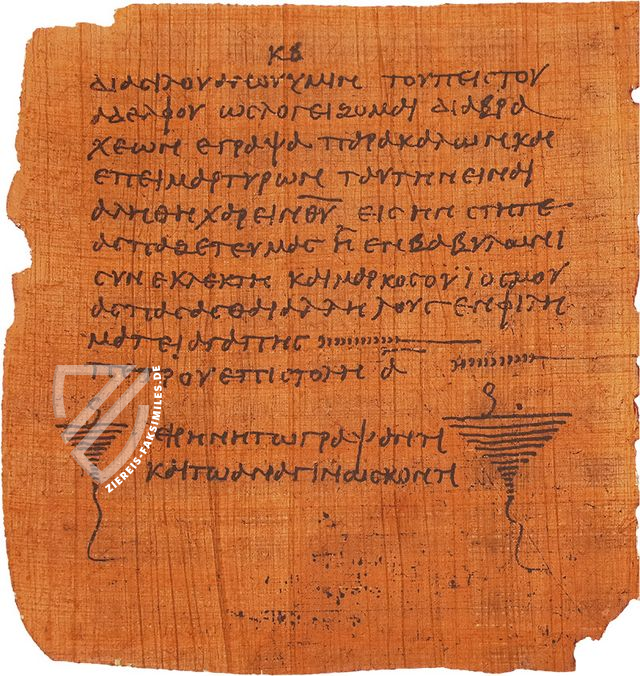 κβ
διαϲιλουανουυμιν τουπειϲτου
αδελφου ωϲλογειζομαι διαβρα
χεων εγραψα παρακαλων και
επειμαρτυρων ταυτην ειναι
αληθη χαρειν θ̅υ̅ ειϲ ην ϲτητε
αϲπαζετευμαϲ η ενβαβυλωνι
ϲυνεκλεκτη και μαρκοϲουιοϲμου
αϲπαϲαϲθαιαλληλουϲ ενφιλη
ματειαγαπηϲ
πετρουεπιϲτολη α̅
ειρηνητωγραψαντι
καιτωαναγινωϲκοντι
ZIEREIS-FAKSIMILES.DE